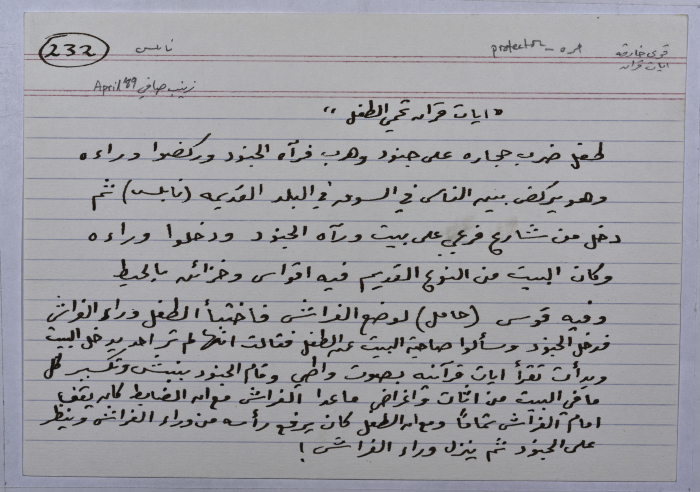 232
نابلس
protector - مره
قوى خارقه
ايات قران
زينب صافي April 89
"ايات قران تحمي الطفل"
طفل ضرب حجاره على جنود وهرب فرآه الجنود وركضوا وراءه
وهو يركض بين الناس في السوق في البلد القديمه (نابلس) ثم
دخل من شارع فرعي على بيت ورآه الجنود ودخلوا وراءه
وكان البيت من النوع القديم فيه اقواس وخزائن بالحيط
وفيه قوس (حامل) لوضع الفراش فاختبأ الطفل وراء الفراش
فدخل الجنود وسألوا صاحبة البيت عن الطفل فقالت انها لم تر احد يدخل البيت
وبدأت تقرأ ايات قرآنه بصوت واطي وقام الجنود بنبش وتكسير كل
ما في البيت من اثاث واغراض ماعدا الفراش مع ان الضابط كان يقف
امام الفراش تماماً ومع ان الطفل كان يرفع رأسه من وراء الفراش وينظر
على الجنود ثم ينزل وراء الفراش !